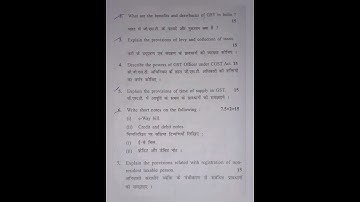 What are the benefits and drawbacks of GST in India ?
15
भारत में जी.एस.टी. के फायदे और नुकसान क्या हैं ?
3. Explain the provisions of levy and collection of taxes.
15
करों के उद्ग्रहण एवं संग्रहण के प्रावधानों की व्याख्या कीजिए ।
4. Describe the powers of GST Officer under CGST Act. 15
सी.जी.एस.टी. अधिनियम के तहत जी.एस.टी. अधिकारी की शक्तियों
का वर्णन कीजिए ।
5. Explain the provisions of time of supply in GST. 15
जी.एस.टी. में आपूर्ति के समय के प्रावधानों को समझाइए ।
6. Write short notes on the following : 7.5×2=15
(i) e-Way bill
(ii) Credit and debit notes.
निम्नलिखित पर संक्षिप्त टिप्पणियाँ लिखिए :
(i) ई-वे बिल
(ii) क्रेडिट और डेबिट नोट ।
7. Explain the provisions related with registration of non-
resident taxable person. 15
अनिवासी कराधेय व्यक्ति के पंजीकरण से संबंधित प्रावधानों
को समझाइए ।